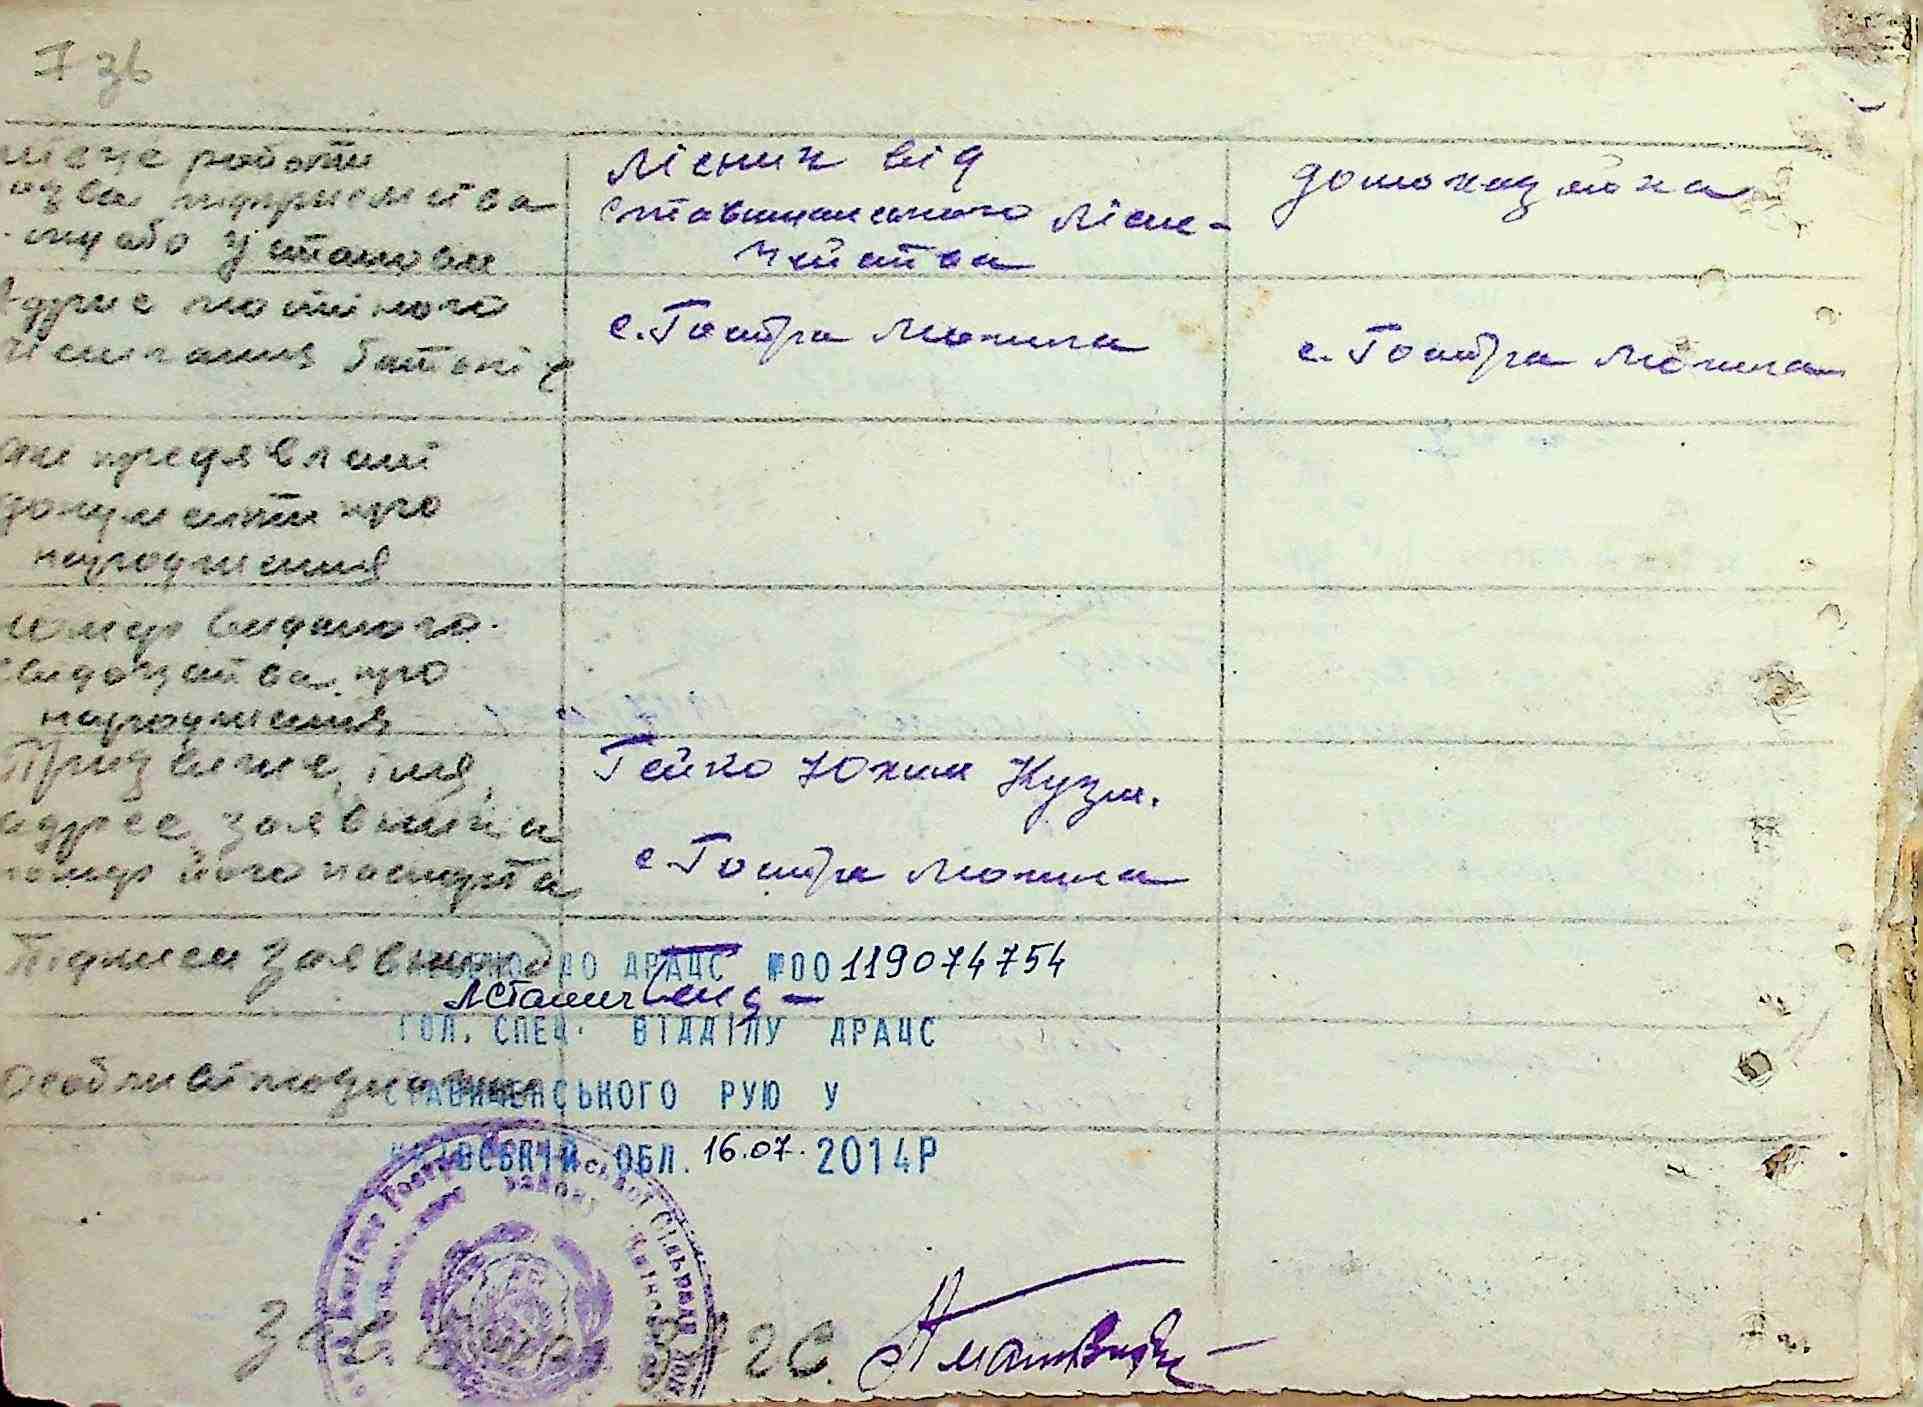 7 зв
місце роботи
азва підприємства
ину або установи
лісник від
Ставищанського лісни-
чийства
домохазяйка
Адрес постійного
мешкання батьків
с. Гостра Могила
с. Гостра Могила
які предявлені
документи про
народження
номер виданого
свидоцтва про
народження
Призвище, імя,
адрес заявника
номер його паспорта
Гейко Юхим Кузм.
с. Гостра Могила
Підписи заявників
ДО ДРАЦС №00119074754
ГОЛ. СПЕЦ. ВІДДІЛУ ДРАЦС
особливі познач
СТАВИЩЕНСЬКОГО РУЮ У
КИЇВСЬКІЙ ОБЛ. 16.07. 2014Р
Зав. Бюро ЗАГС.